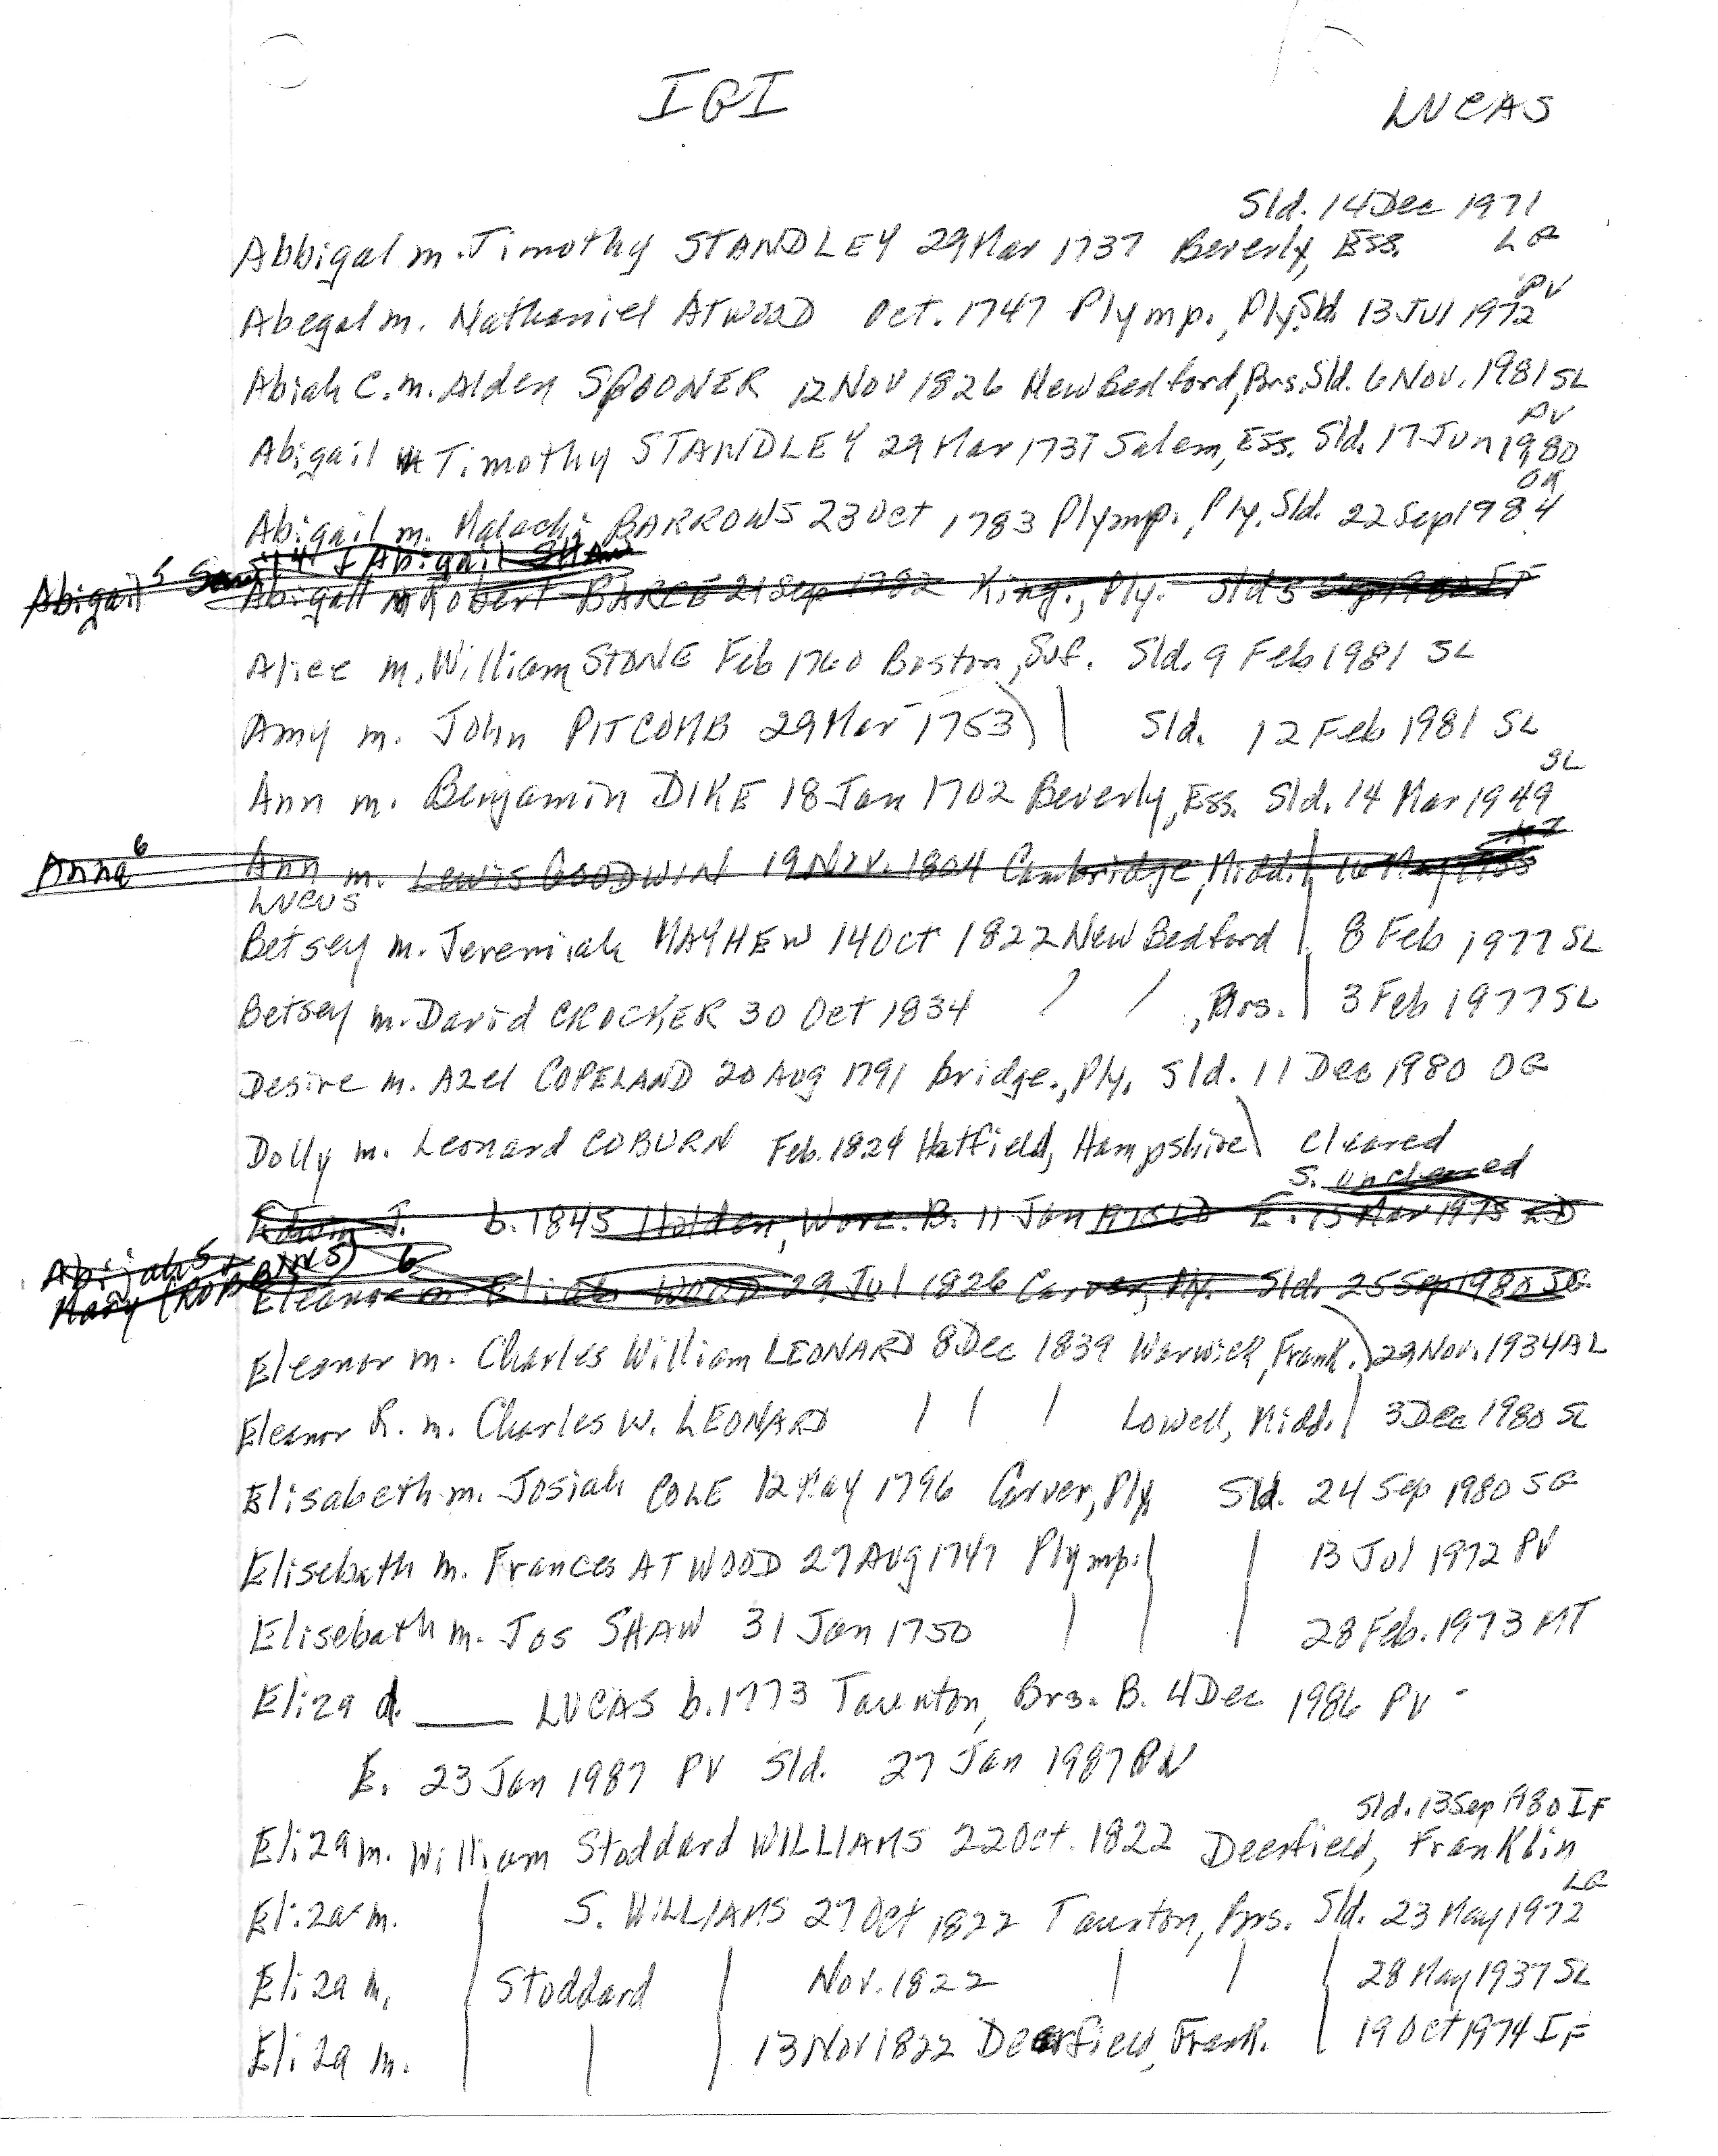 IGI
LUCAS
Sld. 14 Dec 1971
Abbigal m. Timothy STANDLEY 29 Mar 1737 Beverly, Ess. LG
PV
Abegal m. Nathaniel ATWOOD Oct. 1747 Plymp., Ply. Sld. 13 Jul 1972
Abiah C. m. Alden SPOONER 12 Nov 1826 New Bedford, Brs. Sld. 6 Nov. 1981 SL
PV
Abigail m Timothy STANDLEY 29 Mar 1737 Salem, Ess. Sld. 17 Jun 1980
OG
Abigail m. Malachi BARROWS 23 Oct 1783 Plymp., Ply. Sld. 22 Sep 1984
& Abigail SHAW
Abigail 5
Abigail m Robert BARCE 21 Sep 1782 King., Ply. Sld 5 Sep 1980 IF
Alice m. William STONE Feb 1760 Boston, Suf. Sld. 9 Feb 1981 SL
Amy m. John PITCOMB 29 Mar 1753 ) | Sld. 12 Feb 1981 SL
SL
Ann m. Benjamin DIKE 18 Jan 1702 Beverly, Ess. Sld. 14 Mar 1949
Anna 6
Ann m. Lewis GOODWIN 19 Nov. 1804 Cambridge, Midd. | 16 May
LUCUS
Betsey m. Jeremiah MAYHEW 14 Oct 1822 New Bedford | 8 Feb 1977 SL
Betsey m. David CROCKER 30 Oct 1834 / / , Brs. | 3 Feb 1977 SL
Desire m. Azel COPELAND 20 Aug 1791 bridge., Ply. Sld. 11 Dec 1980 OG
Dolly m. Leonard COBURN Feb. 1824 Hatfield, Hampshire ) Cleared
S. uncleared
Edwin J. b. 1845 Holden, Worc. B. 11 Jan 1975 LD E. 13 Mar 1975 LD
Abijah 5 &
Mary (ROBBINS) 6
Eleanor m Eliab WOOD 29 Jul 1826 Carver, Ply. Sld. 25 Sep 1980 SG
Eleanor m. Charles William LEONARD 8 Dec 1839 Warwick, Frank. ) 23 Nov. 1934 AL
Eleanor R. m. Charles W. LEONARD | | | Lowell, Midd. | 3 Dec 1980 SL
Elisabeth m. Josiah COLE 12 May 1796 Carver, Ply Sld. 24 Sep 1980 SG
Elisebath m. Frances ATWOOD 27 Aug 1747 Plymp. | | 13 Jul 1972 PV
Elisebath m. Jos SHAW 31 Jan 1750 | | | 28 Feb. 1973 MT
Eliza d. ____ LUCAS b. 1773 Taunton, Brs. B. 4 Dec 1986 PV
E. 23 Jan 1987 PV Sld. 27 Jan 1987 PV
Sld. 13 Sep 1980 IF
Eliza m. William Stoddard WILLIAMS 22 Oct. 1822 Deerfield, Franklin
LG
Eliza m. | S. WILLIAMS 27 Oct 1822 Taunton, Brs. Sld. 23 May 1972
Eliza m. | Stoddard | Nov. 1822 | | | 28 May 1937 SL
Eliza m. | | | 13 Nov 1822 Deerfield, Frank. | 19 Oct 1974 IF